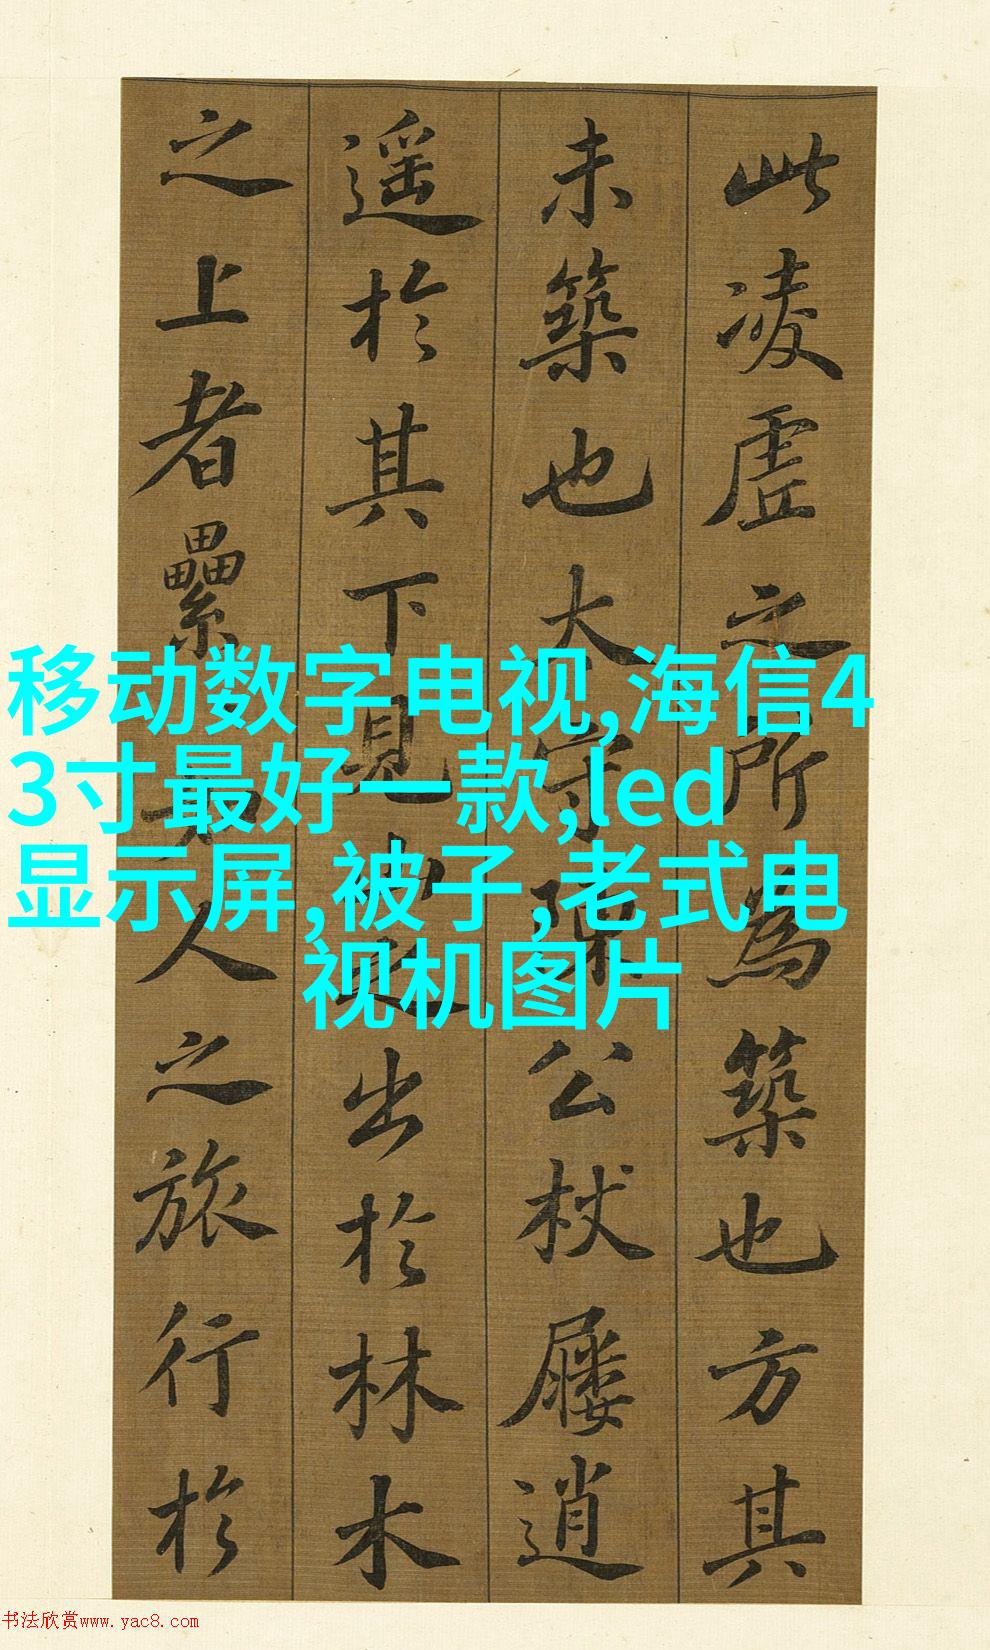 此凌虛之所為築也方其
未築也太守陳公杖屨逍
遥於其下見山之出於林木
之上者纍如人之旅行於
移动数字电视,海信4
3寸最好一款,led
显示屏,被子,老式电
视机图片
书法欣赏www.yac8.com